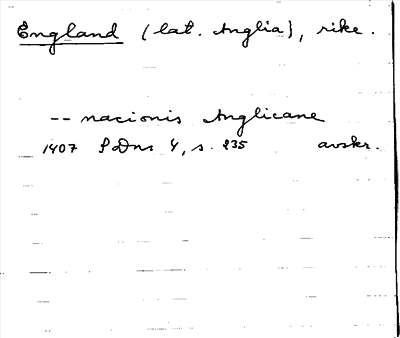 England (lat. Anglia), rike.
-- nacionis Anglicane
1407 SDns 4, s. 235 avskr.